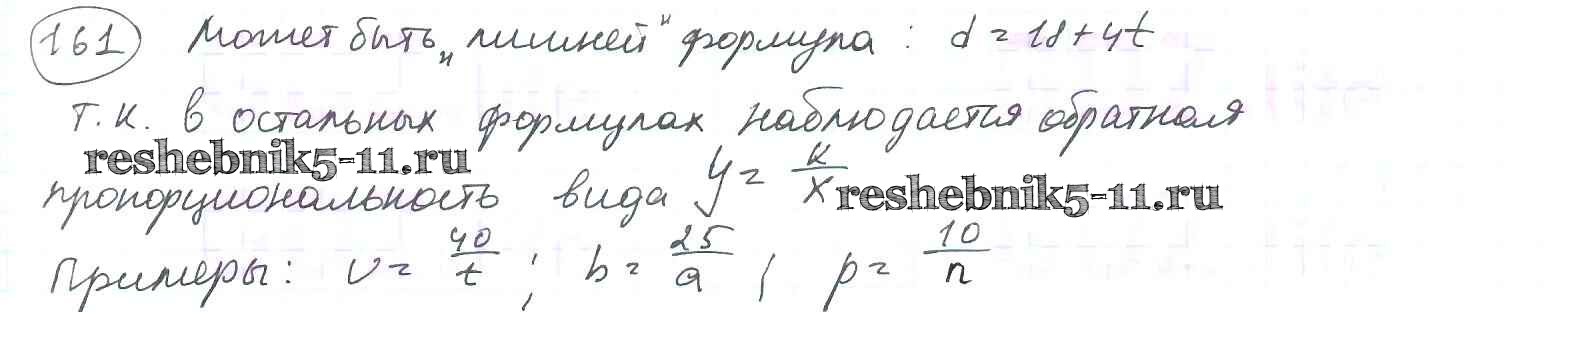 161 Может быть „лишней" формула: d = 18 + 4t
т.к. в остальных формулах наблюдается обратная
reshebnik5-11.ru
пропорциональность вида y = k/x
reshebnik5-11.ru
Примеры: v = 40/t ; b = 25/a ; p = 10/n